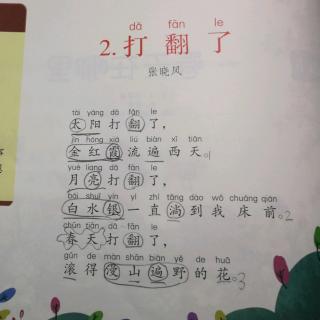 dǎ fān le
2.打翻了
张晓风
tài yáng dǎ fān le
太阳打翻了，
jīn hóng xiá liú biàn xī tiān
金红霞流遍西天。1
yuè liang dǎ fān le
月亮打翻了，
bái shuǐ yín yì zhí tǎng dào wǒ chuáng qián
白水银一直淌到我床前。2
chūn tiān dǎ fān le
春天打翻了，
gǔn de màn shān biàn yě de huā
滚得漫山遍野的花。3